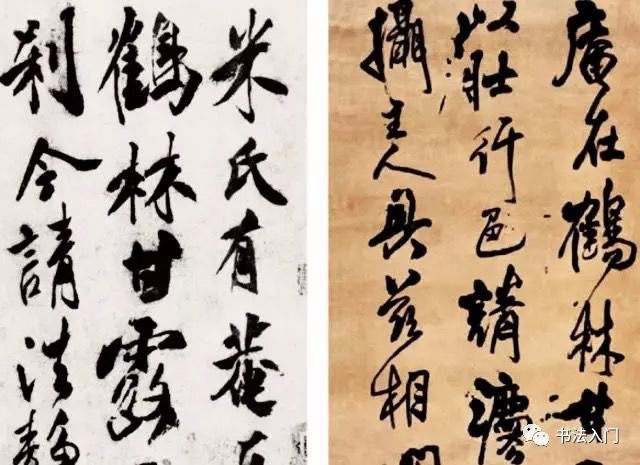 米氏有菴
鶴林甘露
刹今請法
庵在鶴林甘
以壯行色請
攝主人具茲相
书法入门